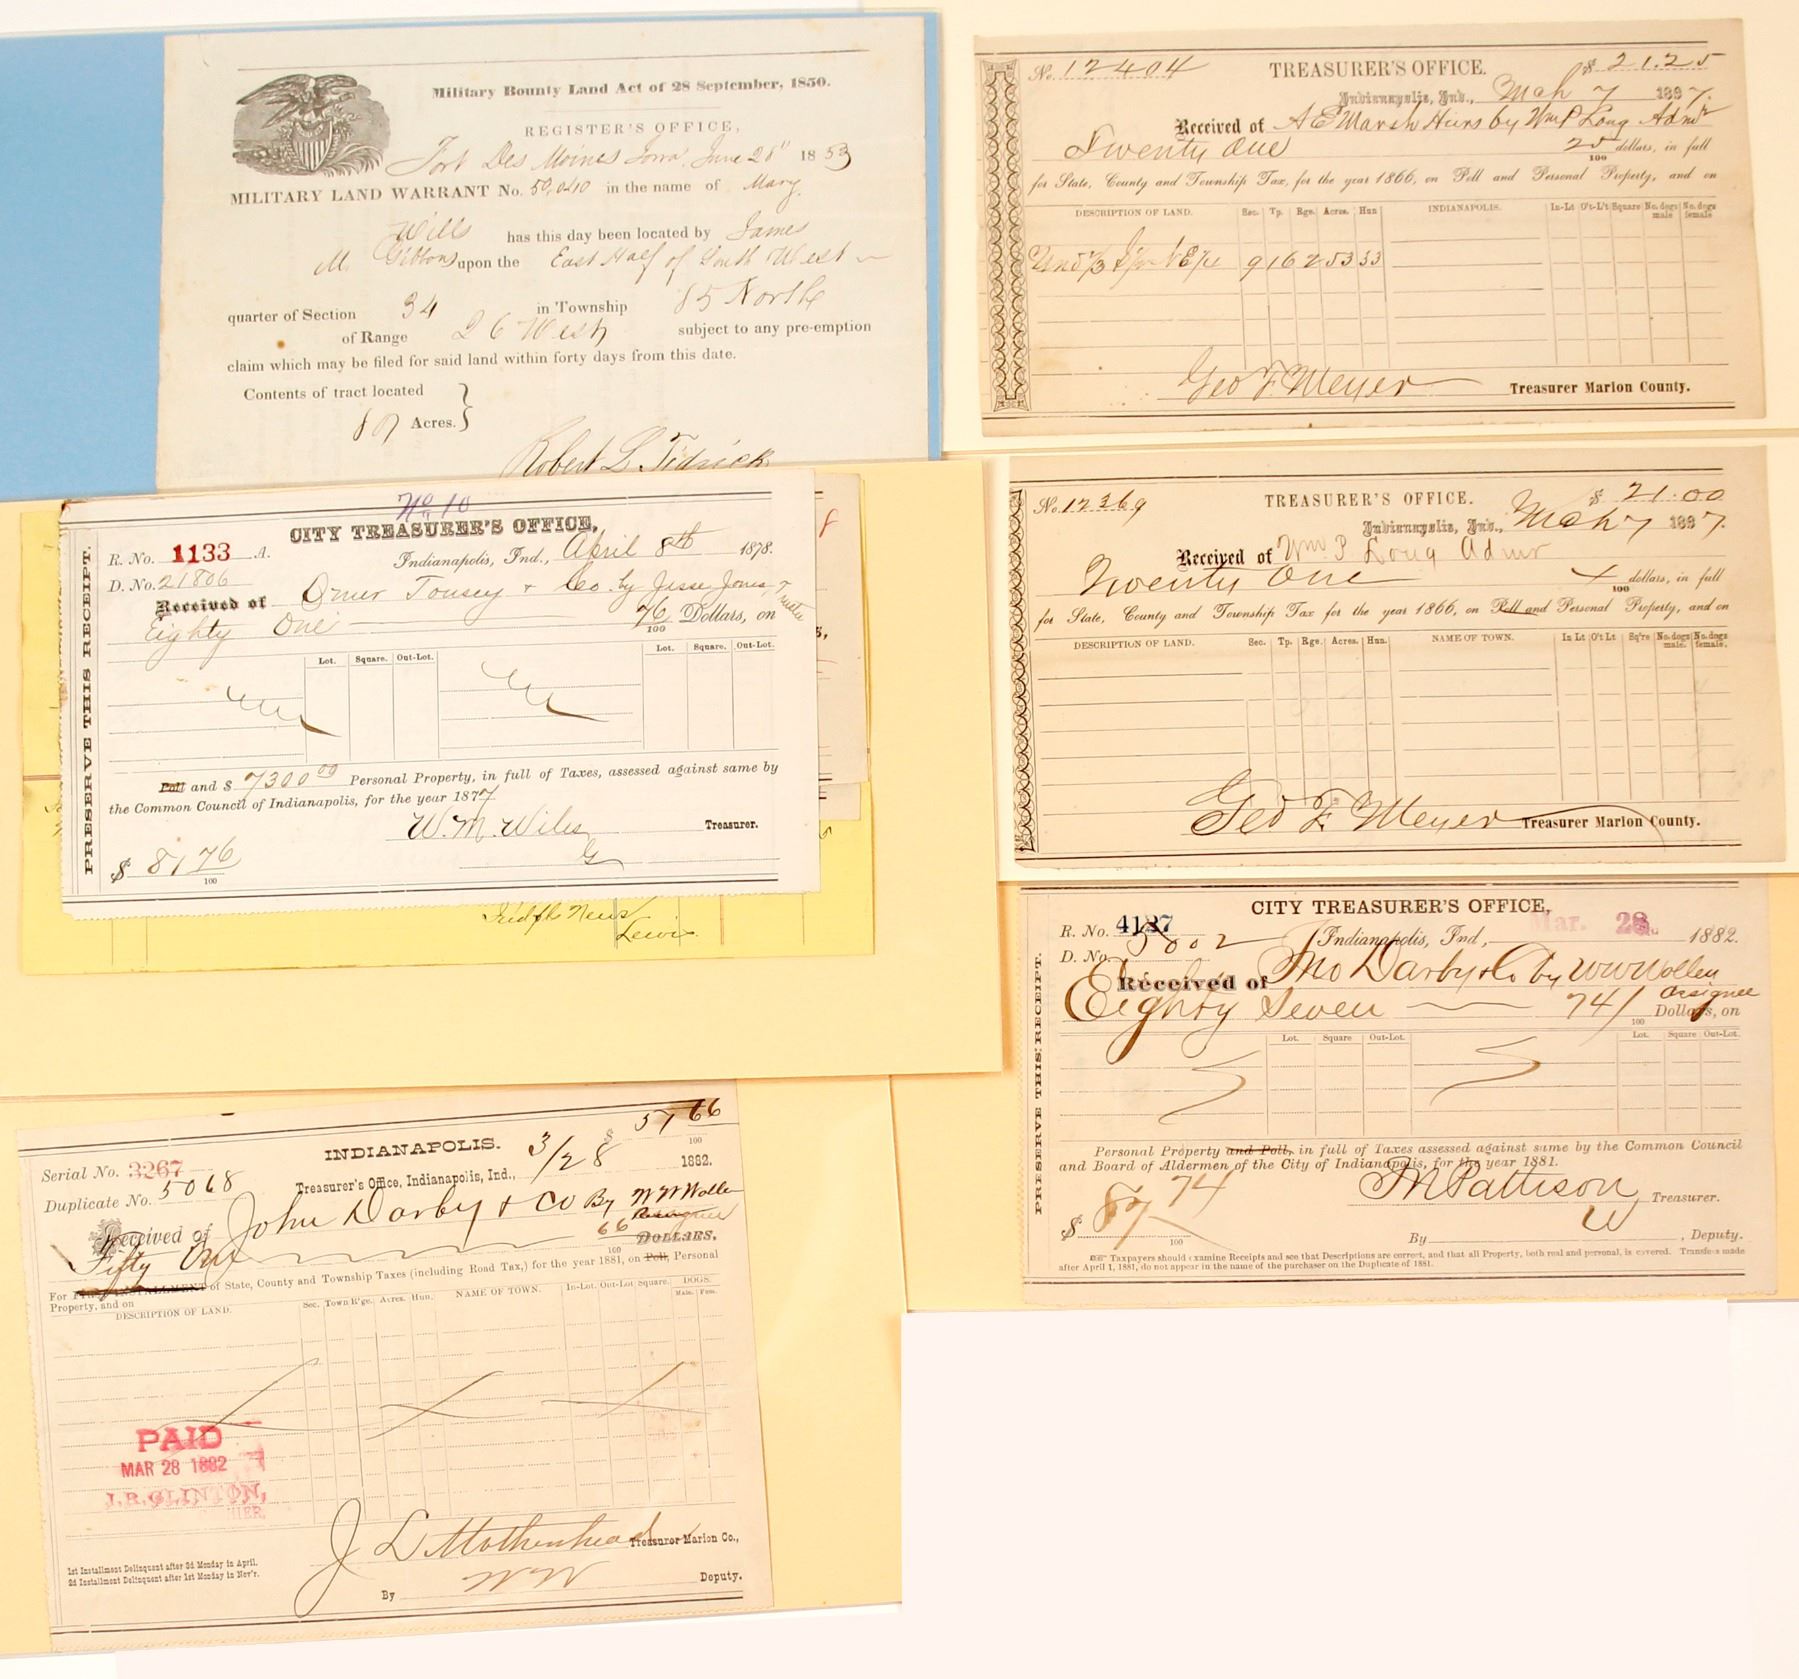 Military Bounty Land Act of 28 September, 1850.
REGISTER'S OFFICE,
Fort Des Moines Iowa, June 28" 1853
MILITARY LAND WARRANT No. 50,040 in the name of Mary
Wills has this day been located by James
M. Gibbons upon the East Half of South West
quarter of Section 34 in Township 85 North
of Range 26 West subject to any pre-emption
claim which may be filed for said land within forty days from this date.
Contents of tract located
Acres.
Robert L. Tidrick
No. 12404 TREASURER'S OFFICE. $ 21.25
Indianapolis, Ind., Mch 7 1867.
Received of A E Marsh Heirs by Wm P Long Admr
Twenty One 25/100 dollars, in full
for State, County and Township Tax, for the year 1866, on Poll and Personal Property, and on
DESCRIPTION OF LAND. Sec. Tp. Rge. Acres. Hun INDIANAPOLIS. In-Lt O't-L't Square No. dogs male No. dogs female
Und 1/3 9 16 2 53 33
Geo F. Meyer Treasurer Marion County.
No. 12369 TREASURER'S OFFICE. $ 21.00
Indianapolis, Ind., Mch 7 1867.
Received of Wm P. Long Admr
Twenty One x/100 dollars, in full
for State, County and Township Tax for the year 1866, on Poll and Personal Property, and on
DESCRIPTION OF LAND. Sec. Tp. Rge. Acres. Hun. NAME OF TOWN. In Lt O't Lt Sq're No. dogs male. No. dogs female.
Geo F. Meyer Treasurer Marion County.
No 10
CITY TREASURER'S OFFICE,
R. No. 1133 A. Indianapolis, Ind., April 8th 1878.
D. No. 21806
Received of Omer Tousey & Co. by Jesse Jones, Trustee
Eighty One 76/100 Dollars, on
Lot. Square. Out-Lot. Lot. Square. Out-Lot.
Poll and $ 7300 00 Personal Property, in full of Taxes, assessed against same by
the Common Council of Indianapolis, for the year 1877
W. M. Wiles Treasurer.
G
$ 81 76/100
PRESERVE THIS RECEIPT.
Indpls News
Lewis
CITY TREASURER'S OFFICE,
R. No. 4127 Indianapolis, Ind., Mar. 28 1882.
D. No. 5002
Received of Jno Darby & Co by W W Wollen
Assignee
Eighty Seven 74/100 Dollars, on
Lot. Square Out-Lot. Lot. Square Out-Lot.
Personal Property and Poll, in full of Taxes assessed against same by the Common Council
and Board of Aldermen of the City of Indianapolis, for the year 1881.
$ 87 74/100 Pattison Treasurer.
By W, Deputy.
Taxpayers should examine Receipts and see that Descriptions are correct, and that all Property, both real and personal, is covered. Transfers made
after April 1, 1881, do not appear in the name of the purchaser on the Duplicate of 1881.
PRESERVE THIS RECEIPT.
$ 51 66/100
INDIANAPOLIS.
Serial No. 3267
Treasurer's Office, Indianapolis, Ind., 3/28 1882.
Duplicate No. 5068
Received of John Darby & Co By W W Wollen
Assignee
Fifty One 66/100 DOLLARS.
For INSTALLMENT of State, County and Township Taxes (including Road Tax,) for the year 1881, on Poll, Personal
Property, and on
DESCRIPTION OF LAND. Sec. Town R'ge. Acres. Hun. NAME OF TOWN. In-Lot. Out-Lot Square. DOGS.
Male. Fem.
PAID
MAR 28 1882
J. R. CLINTON,
J L Mothershead Treasurer Marion Co.,
1st Installment Delinquent after 3d Monday in April.
2d Installment Delinquent after 1st Monday in Nov'r.
By WW Deputy.